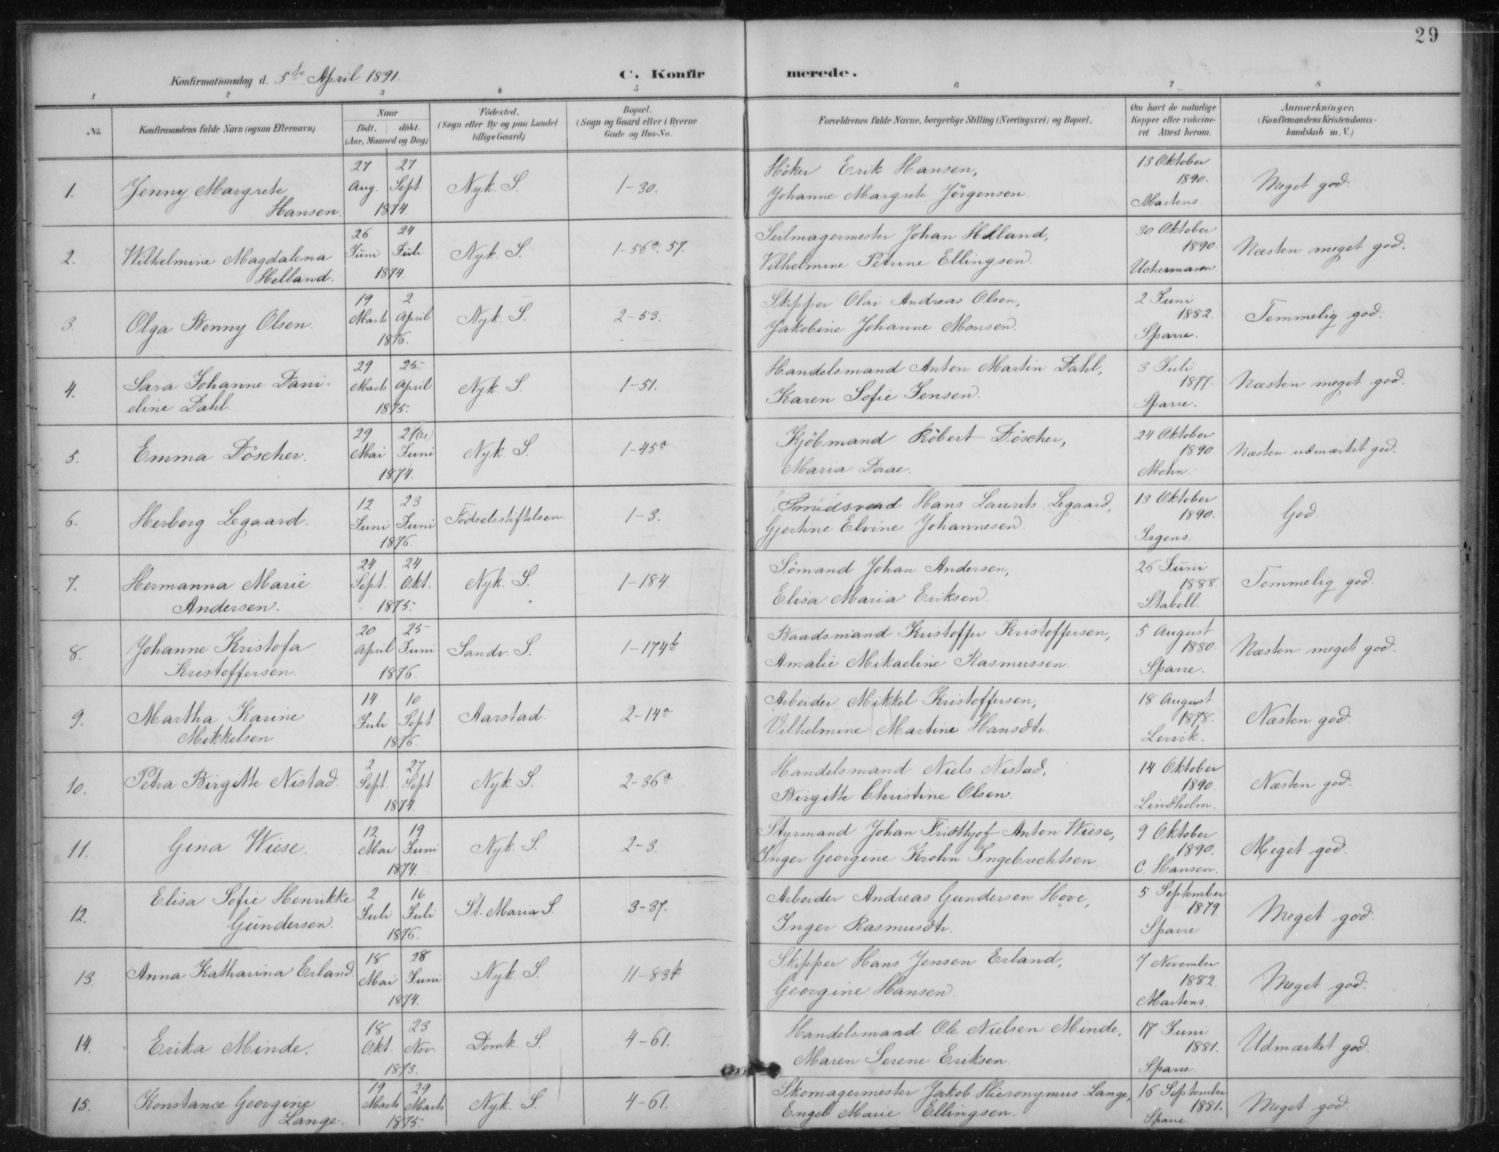 29
Konfirmationsdag d. 5te April 1891.
C. Konfirmerede.
1 2 3 4 5 6 7 8
No. Konfirmandens fulde Navn (ogsaa Efternavn) Naar født. døbt. (Aar, Maaned og Dag) Fødested. (Sogn eller By og paa Landet tillige Gaard) Bopæl. (Sogn og Gaard eller i Byerne Gade og Hus-No. Forældrenes fulde Navne, borgerlige Stilling (Næringsvei) og Bopæl. Om havt de naturlige Kopper eller vakcineret Attest herom. Anmærkninger. (Konfirmandens Kristendomskundskab m. V.)
1. Jenny Margrete Hansen. 27 Aug. 27 Sept. 1874. Nyk. S. 1-30. Høker Erik Hansen, Johanne Margrete Jörgensen. 13 Oktober 1890. Martens. Meget god.
2. Wilhelmine Magdalena Helland. 26 Juni 24 Juli 1874. Nyk. S. 1-56a.57. Seilmagermester Johan Helland, Vilhelmine Petrine Ellingsen. 30 Oktober 1890. Uchermann. Næsten meget god.
3. Olga Benny Olsen. 19 Marts 2 April 1876. Nyk. S. 2-53. Skipper Olai Andreas Olsen, Jakobine Johanne Monsen. 2 Juni 1882. Sparre. Temmelig god.
4. Sara Johanne Danieline Dahl. 29 Marts 25 April 1875. Nyk. S. 1-51. Handelsmand Anton Martin Dahl, Karen Sofie Jensen. 3 Juli 1877. Sparre. Næsten meget god.
5. Emma Döscher. 29 Mai Juni 1874. Nyk. S. 1-45a Kjöbmand Robert Döscher, Maria 24 Oktober 1890. Mohn. Næsten udmærket god.
6. Herborg Legaard. 12 Juni 23 Juni 1876. Fødselsstiftelsen. 1-3. Hans Laurits Legaard, Gjertine Elvine Johannesen. 13 Oktober 1890. Irgens. God.
7. Hermanna Marie Andersen. 24 Sept. 24 Okt. 1875. Nyk. S. 1-184 Sömand Johan Andersen, Elisa Maria Eriksen. 26 Juni 1888. Stabell. Temmelig god.
8. Johanne Kristofa Kristoffersen. 20 April 25 Juni 1876. Sandv. S. 1-174b Baadsmand Kristoffer Kristoffersen, Amalie Mikaeline Rasmussen. 5 August 1880. Sparre. Næsten meget god.
9. Martha Karine Mikkelsen. 14 Juli 10 Sept 1876. Aarstad. 2-14a Arbeider Mikkel Kristoffersen, Vilhelmine Martine Hansdtr. 18 August 1878. Lervik. Næsten god.
10. Petra Birgitte Nistad. 2 Sept. 27 Sept 1874. Nyk. S. 2-36a Handelsmand Niels Nistad, Birgitte Christine Olsen. 14 Oktober 1890. Lindholm. Næsten god.
11. Gina Wiese. 12 Mai 19 Juni 1874. Nyk. S. 2-3. Styrmand Johan Fridthjof Anton Wiese, Inger Georgine Krohn Ingebrechtsen. 9 Oktober 1890. C. Hansen. Meget god.
12. Elisa Sofie Henrikke Gundersen. 2 Juli 16 Juli 1876. St. Maria S. 3-37. Arbeider Andreas Gundersen Hove, Inger Rasmusdtr. 5 September 1879 Sparre Meget god.
13. Anna Katharina Erland. 18 Mai 28 Juni 1874. Nyk S. 11-83b Skipper Hans Jensen Erland, Georgine Hansen. 7 November 1882. Martens. Meget god.
14. Erika Minde. 18 Okt. 23 Nov. 1873. Domk. S. 4-61. Handelsmand Ole Nielsen Minde, Maren Serene Eriksen. 17 Juni 1881. Sparre. Udmærket god.
15. Konstance Georgine Lange. 19 Marts 29 Marts 1875. Nyk. S. 4-61. Skomagermester Jakob Hieronymus Lange, Engel Marie Ellingsen. 16 September 1881. Sparre. Meget god.